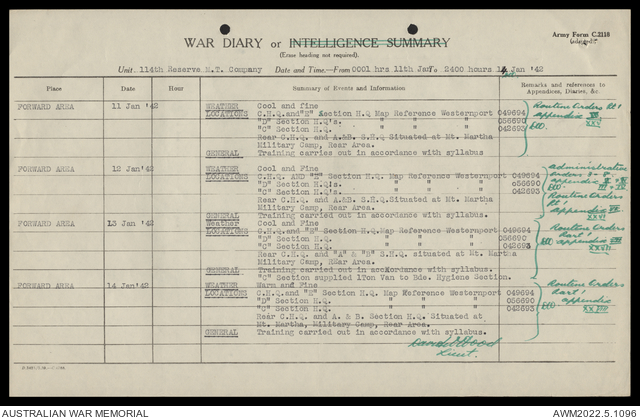 Army Form C.2118
WAR DIARY or INTELLIGENCE SUMMARY
(Erase heading not required).
Unit 114th Reserve M.T. Company Date and Time—From 0001 hrs 11th Jan To 2400 hours Jan '42
Place Date Hour Summary of Events and Information Remarks and references to Appendices, Diaries, &c.
FORWARD AREA 11 Jan '42 WEATHER Cool and fine
LOCATIONS C.H.Q. and "E" Section H.Q Map Reference Westernport 049694
"D" Section H.Q's. " " " 056690
"C" Section H.Q. " " " 042693
Rear C.H.Q and A.&B. S.H.Q Situated at Mt. Martha
Military Camp, Rear Area.
GENERAL Training carries out in accordance with syllabus
Routine Orders Pt 1
appendix
XXV
FORWARD AREA 12 Jan '42 WEATHER Cool and Fine
LOCATIONS C.H.Q AND "E" Section H.Q. Map Reference Westernport 049694
"D" Section H.Q's. " " " 056690
"C" Section H.Q's. " " " 042693
Rear C.H.Q. and A.&B. S.H.Q. Situated at Mt.
Martha Military Camp, Rear Area.
GENERAL Training carried out in accordance with syllabus.
administration
orders
appendix
Routine Orders
Pt 1
appendix
XXVI
FORWARD AREA 13 Jan '42 Weather Cool and Fine
LOCATIONS C.H.Q. and "E" Section H.Q. Map Reference Westernport 049694
"D" Section H.Q. " " " 056690
"C" Section H.Q. " " " 042693
Rear C.H.Q. and "A" & "B" S.H.Q. situated at Mt. Martha
Military Camp, Rear Area.
GENERAL Training carried out in accordance with syllabus.
"C" Section supplied 1Ton Van to Bde. Hygiene Section.
Routine Orders
Part 1
appendix
FORWARD AREA 14 Jan'42 WEATHER Warm and Fine
LOCATIONS C.H.Q. and "E" Section H.Q. Map Reference Westernport 049694
"D" Section H.Q. " " " 056690
"C" Section H.Q. " " " 042693
Rear C.H.Q. and A. & B. Section H.Q. Situated at
Mt. Martha, Military Camp, Rear Area.
GENERAL Training carried out in accordance with syllabus.
Routine Orders
Part 1
appendix
Lieut.
AUSTRALIAN WAR MEMORIAL AWM2022.5.1096